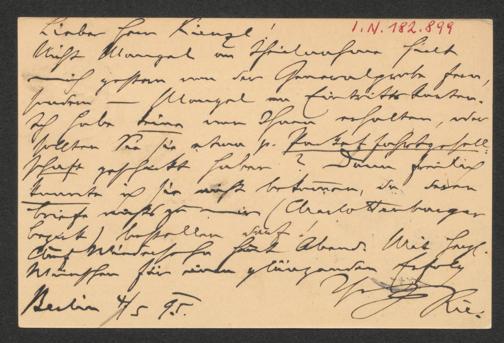 I.N. 182.899
Lieber Herr Kienzl!
Nicht Mangel an Theilnahme hielt
mich gestern von der Generalprobe fern,
sondern — Mangel an Eintrittskarten.
Ich habe keine von Ihnen erhalten, oder
sollten Sie sie etwa p. Packetfahrtgesell
schaft geschickt haben? Dann freilich
konnte ich sie nicht bekommen, da deren
briefe nicht zu mir (Charlottenburger
bezirk) bestellen darf!
Auf Wiedersehn heut Abend. Mit herzl.
Wünschen für einen glänzenden Erfolg
Berlin 4/5 95.
Ihr